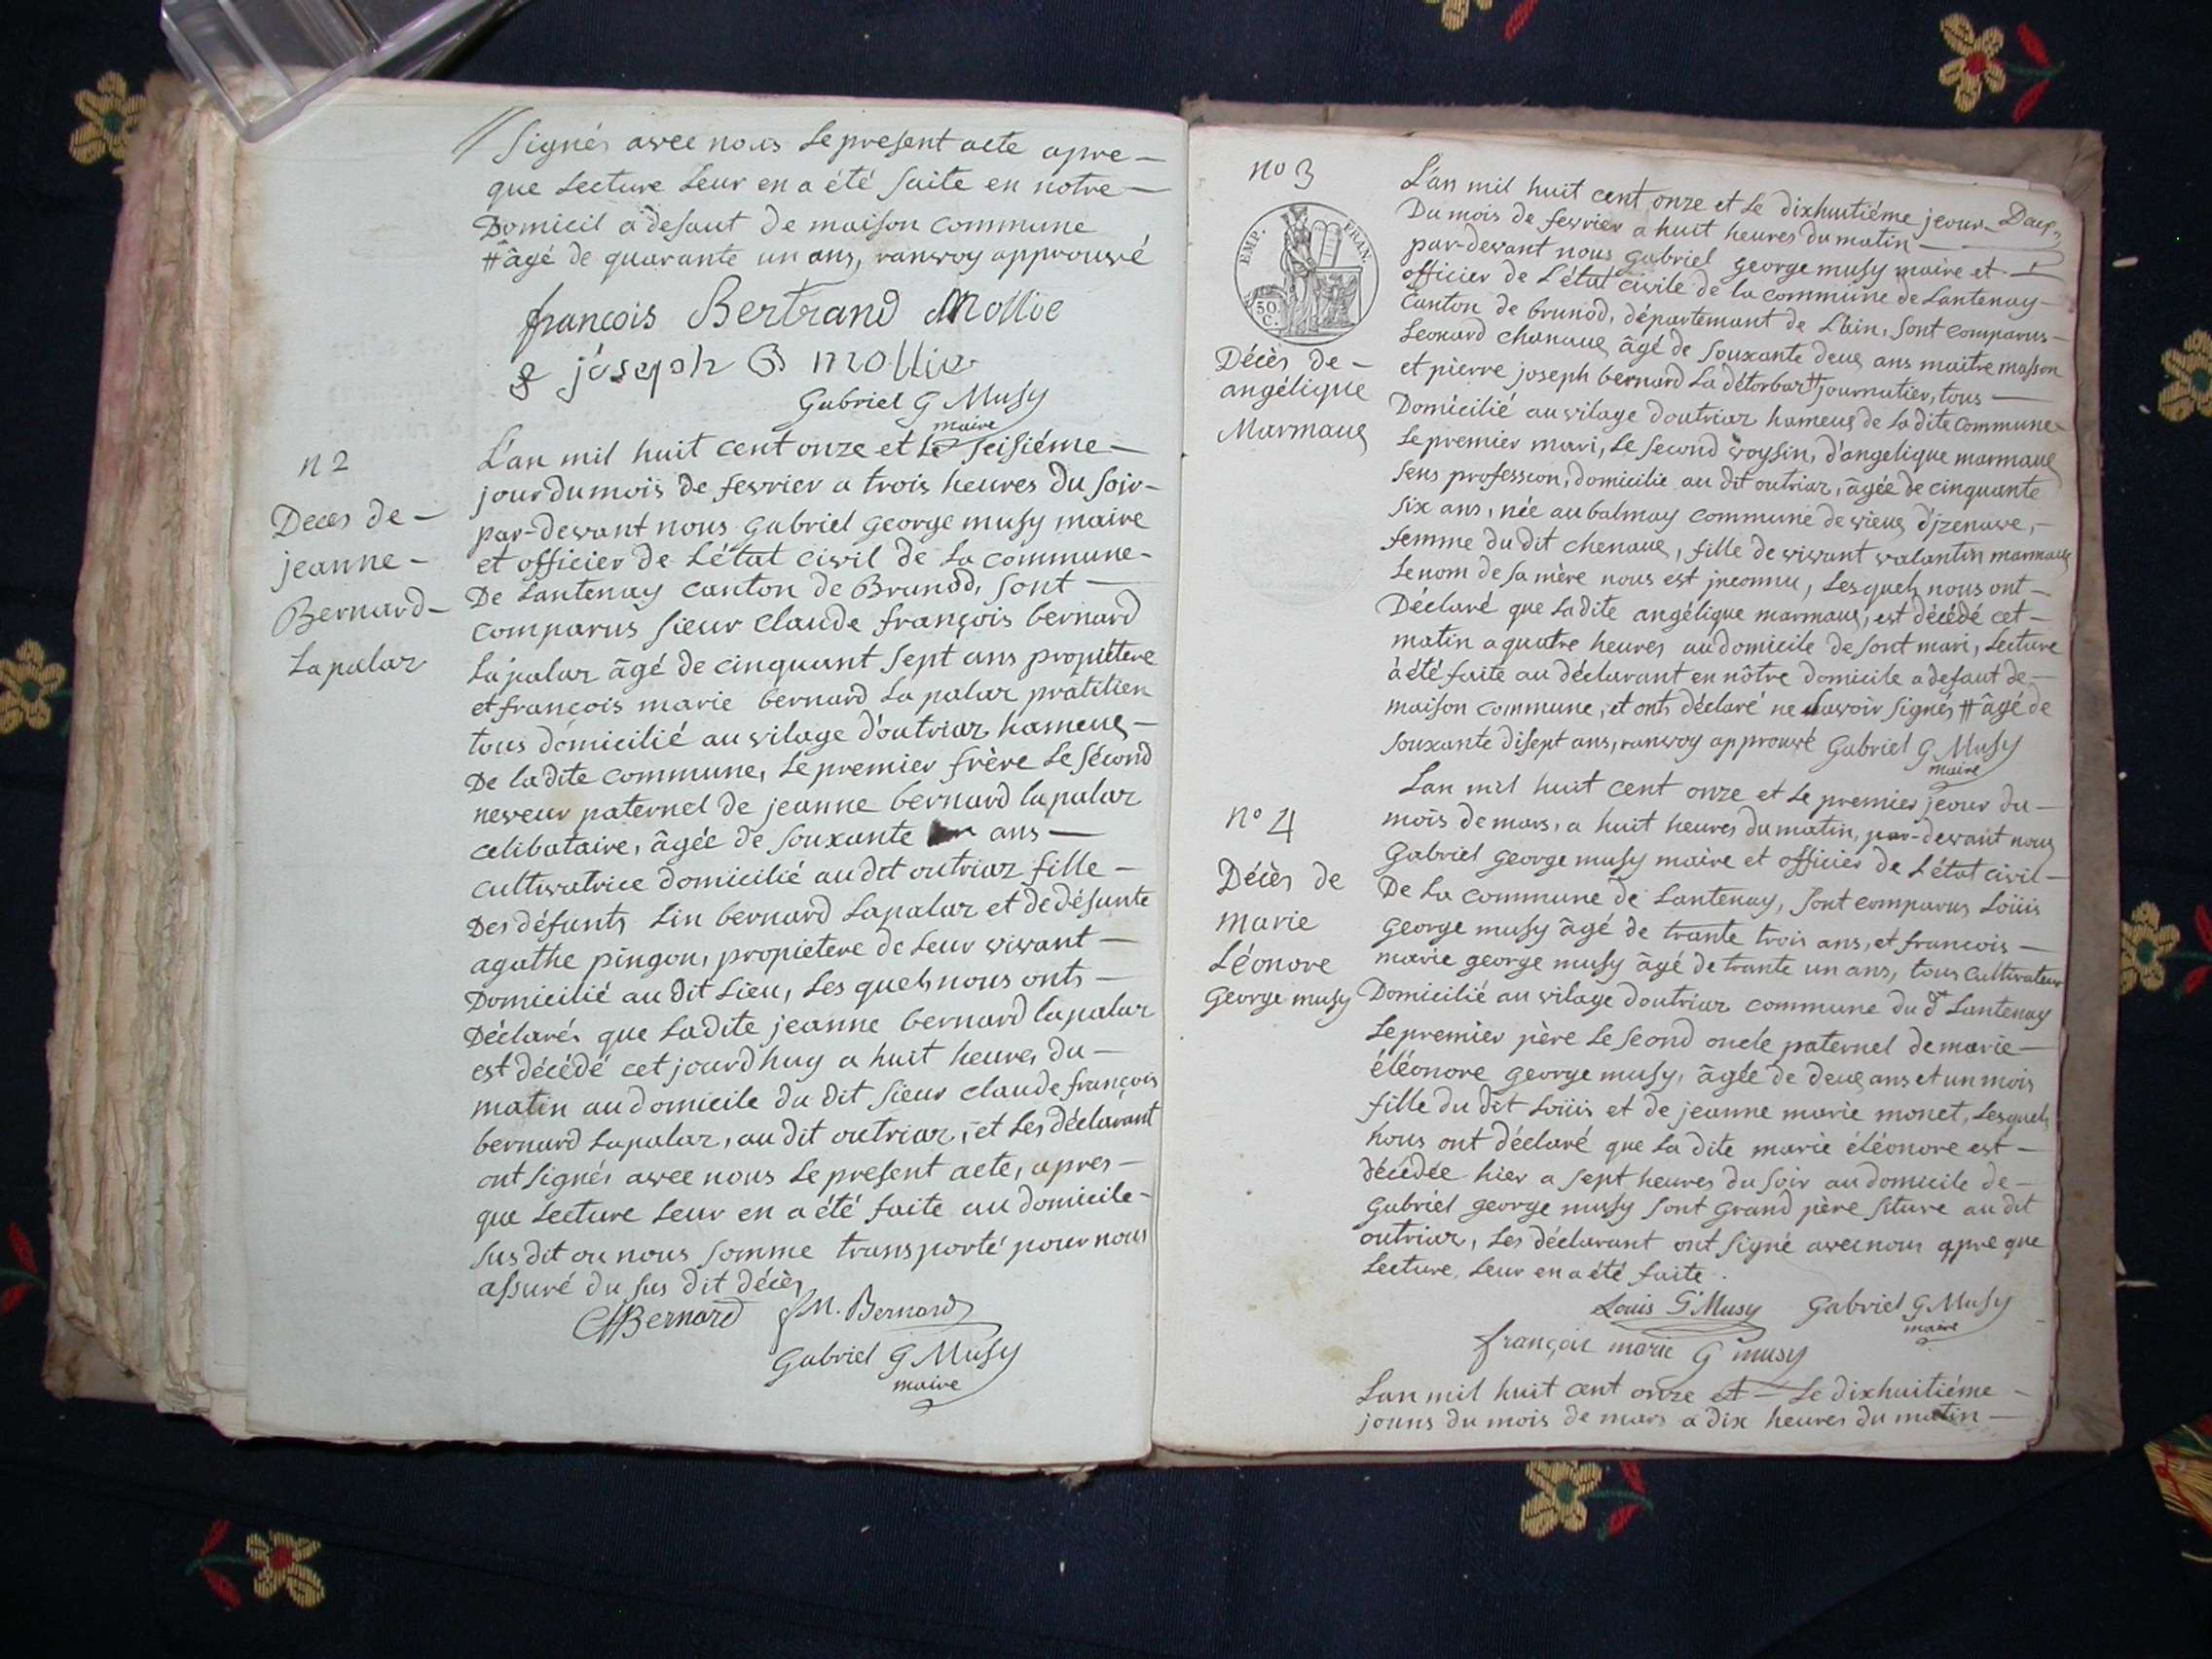 // Signés avec nous Le present acte apre —
que Lecture Leur en a été faite en notre —
Domicil a defaut De maison commune
# âgé de quarante un ans, ranvoy approuvé
françois Bertrand Mollie
joseph B mollie
Gabriel G Musy
maire
n 2
Deces de —
jeanne —
Bernard —
Lapalar
L'an mil huit cent onze et Le seisiéme —
jour du mois De fevrier a trois heures Du soir —
par-devant nous gabriel george musy maire
et officier de L'état civil de La commune —
De Lantenay canton de Brunod, sont —
comparus sieur claude françois bernard
Lapalar âgé de cinquant sept ans propiétere
et françois marie bernard Lapalar pratitien
tous domicilié au vilage d'outriaz hameux —
De la dite commune, Le premier frère Le sécond
neveux paternel de jeanne bernard lapalar
celibataire, âgée de souxante ans —
cultivatrice domicilié au dit outriaz fille —
Des défunts Lin bernard Lapalar et de défunte
agathe pingon, propietere de Leur vivant —
Domicilié au dit Lieu, Les quels nous onts —
Déclarés que La dite jeanne bernard lapalar
est décédé cet jourdhuy a huit heures du —
matin au domicile du dit sieur claude françois
bernard Lapalar, au dit outriaz, et Les déclarant
ont signés avec nous Le present acte, apres —
que Lecture Leur en a été faite au domicile —
sus dit ou nous somme transporté pour nous
assuré du sus dit décès
Bernard f M. Bernard
Gabriel G Musy
maire
no 3
EMP. FRAN.
50 C.
Décès de —
angélique
Marmaux
L'an mil huit cent onze et Le dixhuitiéme jeour —
Du mois de fevrier a huit heures du matin —
par-devant nous gabriel george musy maire et —
officier de L'état civile de la commune de Lantenay —
Canton de brunod, départemant de L'ain, sont comparus —
Leonard chanaux âgé de souxante deux ans maitre masson
et pierre joseph bernard La détorbaz # journatier, tous —
Domicilié au vilage doutriaz hameux de La dite commune
Le premier mari, Le second voysin, d'angelique marmaux
sens profession, domicilie au dit outriaz, âgée de cinquante
six ans, née au balmay commune de vieux d'jzenave, —
femme du dit chenaux, fille de vivant valantin marmaux
Le nom de sa mère nous est jnconnu, Lesquels nous ont —
Déclaré que La dite angélique marmaux, est décédé cet —
matin a quatre heures au domicile de sont mari, Lecture
à été faite au déclarant en nôtre domicile a defaut de —
maison commune, et onts déclaré ne savoir signés # âgé de
souxante disept ans, ranvoy approuvé Gabriel G Musy
maire
n° 4
Décès de
Marie
Léonore
George musy
L'an mil huit cent onze et Le premier jeour du —
mois de mars, a huit heures du matin, par-devant nous
gabriel george musy maire et officier de L'état civil —
De La commune de Lantenay, sont comparus Loüis
George musy âgé de trante trois ans, et francois —
marie george musy âgé de trante un ans, tous cultivateur
Domicilié au vilage doutriaz commune du dt Lantenay
Le premier père Le seond oncle paternel de marie —
éléonore george musy, âgée de deux ans et un mois
fille du dit Loüis et de jeanne marie monet, Lesquels
nous ont déclaré que La dite marie éléonore est —
décédée hier a sept heures du soir au domicile de —
gabriel george musy sont grand père siture au dit
outriaz, Les déclarant ont signé avec nous apre que
Lecture Leur en a été faite.
Louis G Musy Gabriel G Musy
maire
françois marie G musy
L'an mil huit cent onze et — Le dixhuitiéme —
jouns du mois de mars a dix heures du matin —